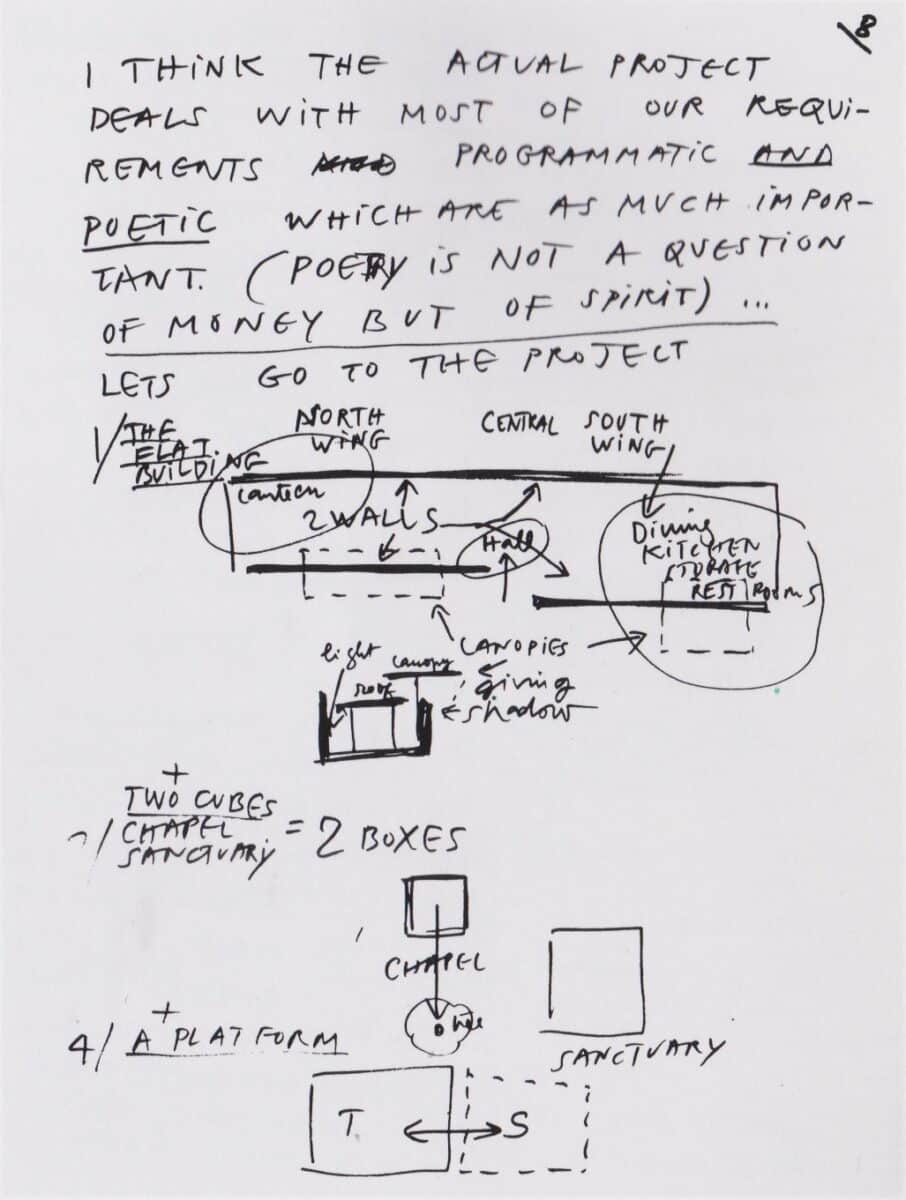 8
I THINK THE ACTUAL PROJECT
DEALS WITH MOST OF OUR REQUI-
REMENTS PROGRAMMATIC AND
POETIC WHICH ARE AS MUCH IMPOR-
TANT. (POETRY IS NOT A QUESTION
OF MONEY BUT OF SPIRIT) ...
LETS GO TO THE PROJECT
1/ THE
FLAT
BUILDING
NORTH
WING
CENTRAL
SOUTH
WING
2 WALLS
Hall
Dining
KITCHEN
STORAGE
REST ROOMS
CANOPIES
light
canopy
roof
giving
shadow
+
TWO CUBES
CHAPEL
SANCTUARY
= 2 BOXES
CHAPEL
SANCTUARY
+
4/ A PLATFORM
T
S